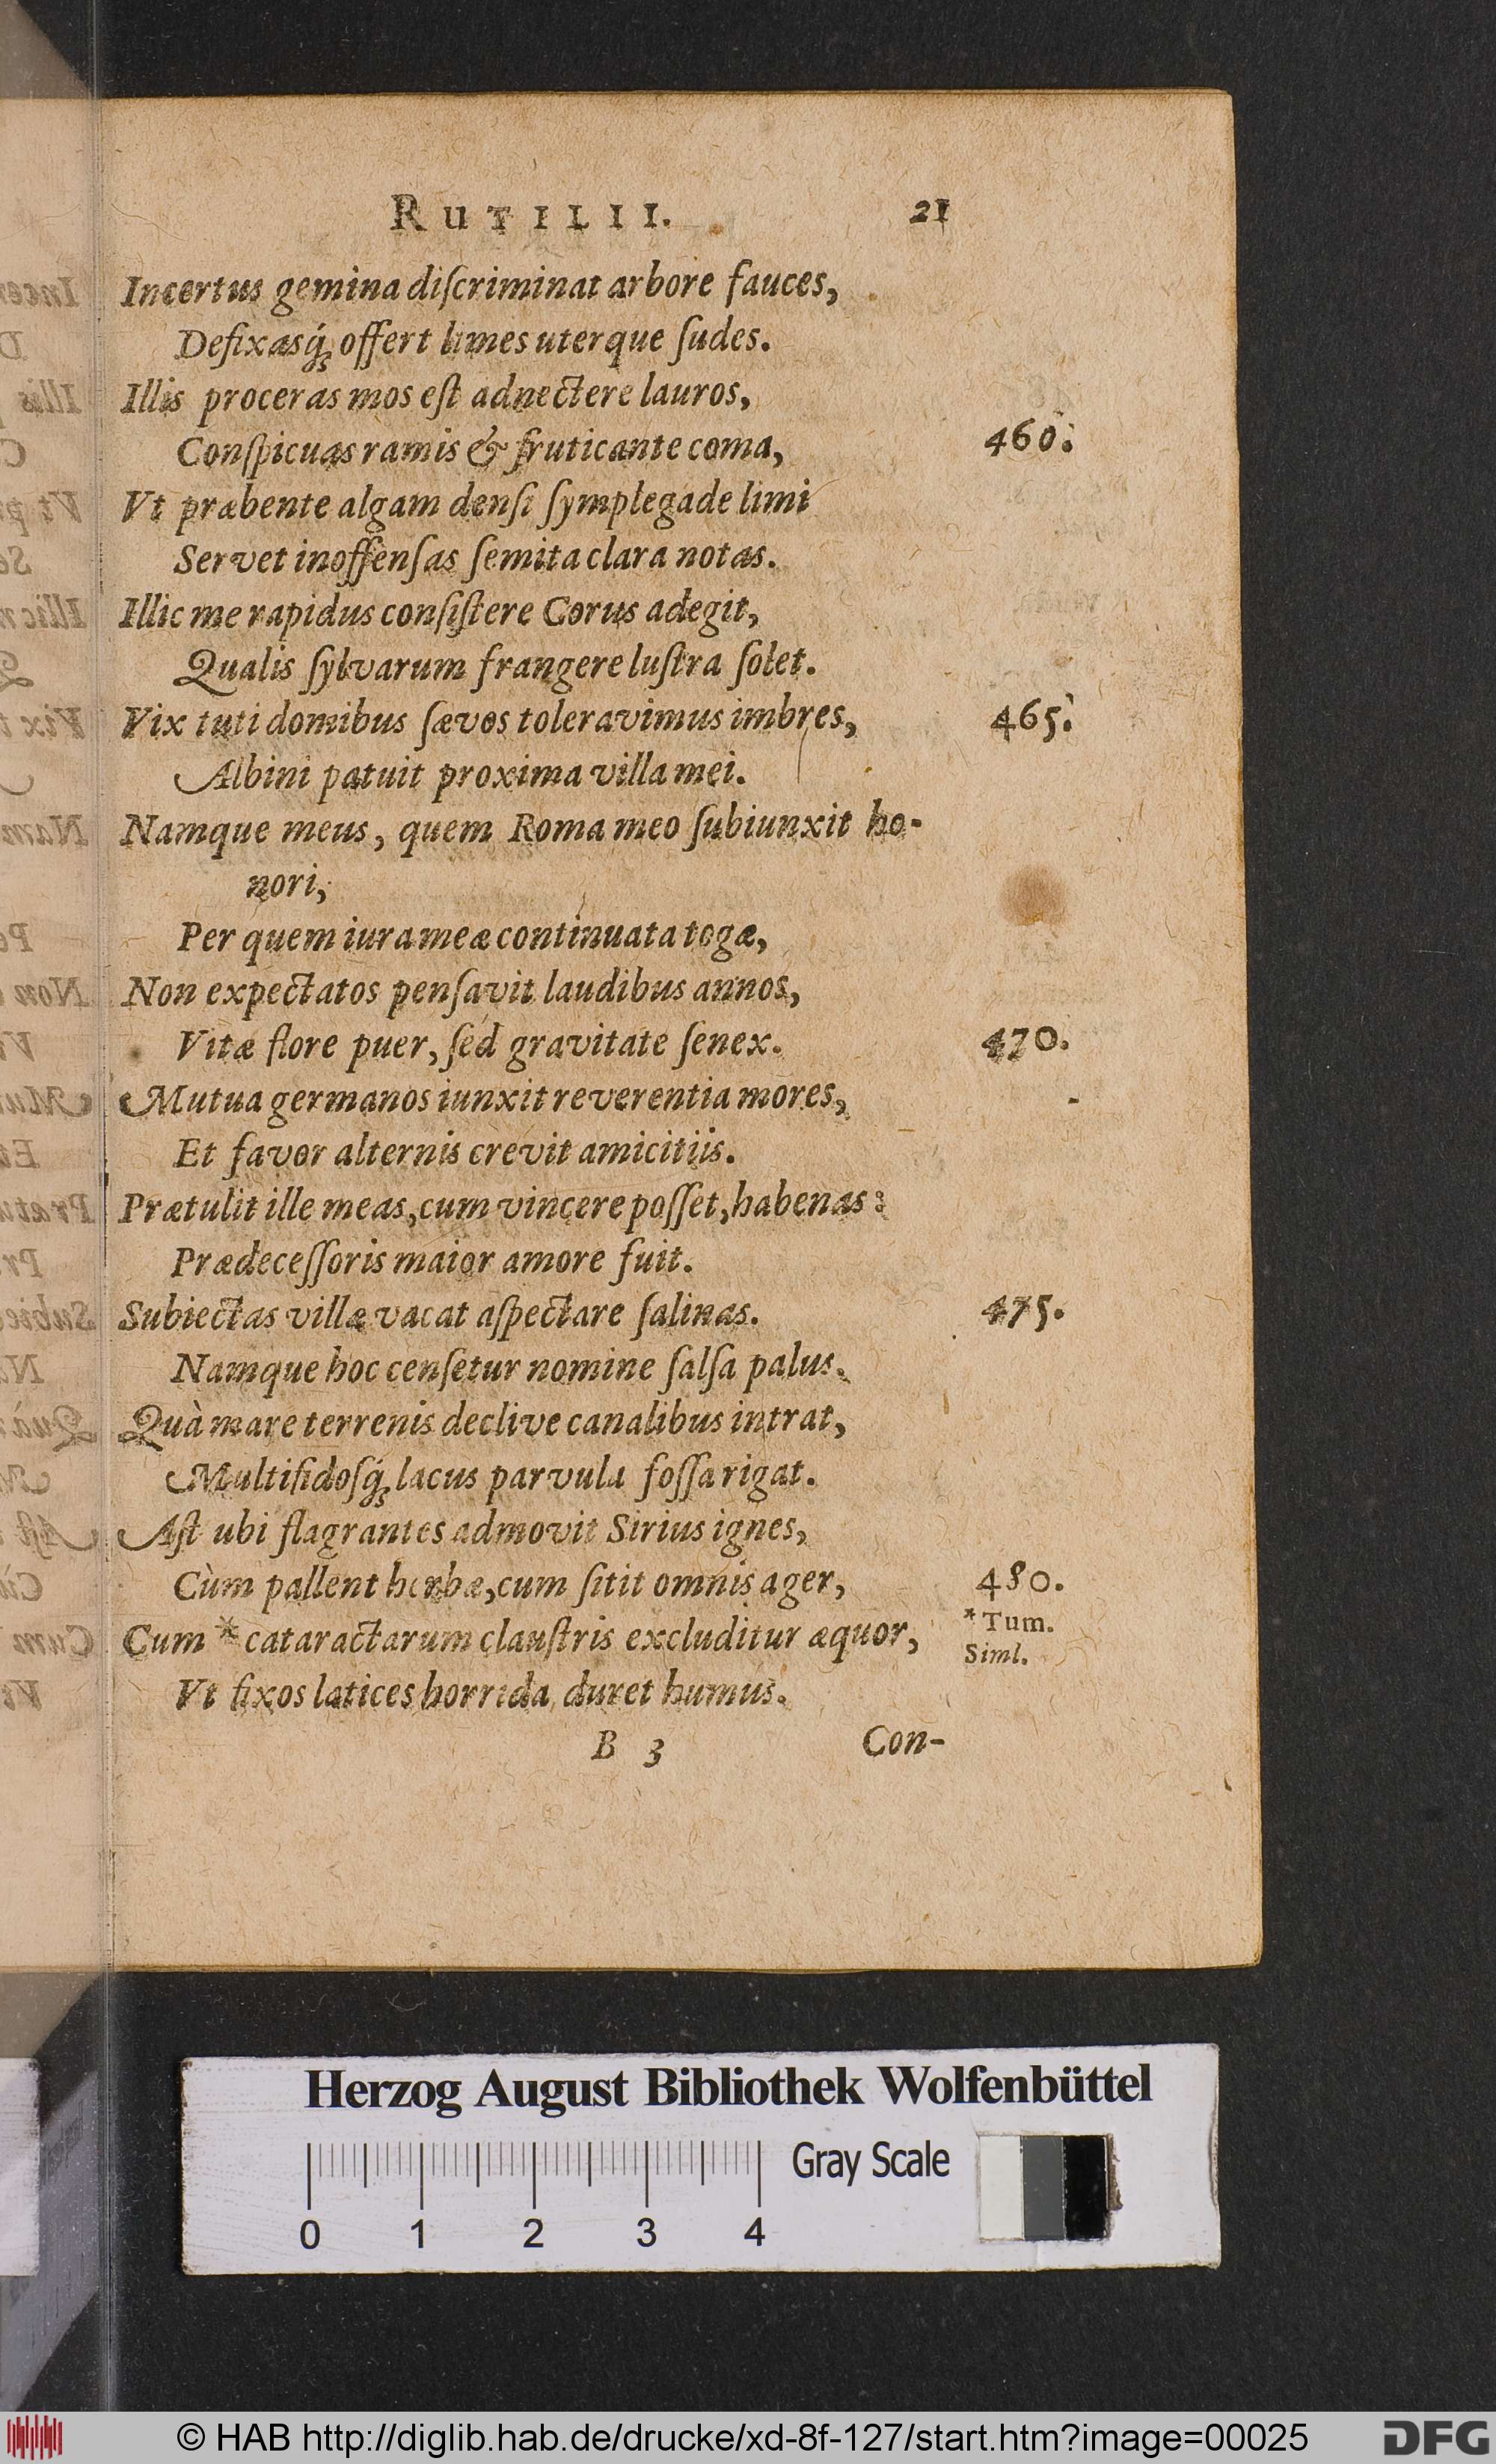 RUTILII. 21
Incertus gemina diſcriminat arbore fauces,
Defixasq́; offert limes uterque ſudes.
Illis proceras mos eſt adnectere lauros,
Conſpicuas ramis & fruticante coma, 460.
Vt præbente algam denſi ſymplegade limi
Servet inoffenſas ſemita clara notas.
Illic me rapidus conſiſtere Corus adegit,
Qualis ſylvarum frangere luſtra ſolet.
Vix tuti domibus ſævos toleravimus imbres, 465.
Albini patuit proxima villa mei.
Namque meus, quem Roma meo ſubiunxit ho-
nori,
Per quem iura meæ continuata togæ,
Non expectatos penſavit laudibus annos,
Vitæ flore puer, ſed gravitate ſenex. 470.
Mutua germanos iunxit reverentia mores,
Et favor alternis crevit amicitiis.
Prætulit ille meas, cum vincere poſſet, habenas:
Prædeceſſoris maior amore fuit.
Subiectas villæ vacat aſpectare ſalinas. 475.
Namque hoc cenſetur nomine ſalſa palus.
Quà mare terrenis declive canalibus intrat,
Multifidoſq́; lacus parvula foſſa rigat.
Aſt ubi flagrantes admovit Sirius ignes,
Cùm pallent herbæ, cum ſitit omnis ager, 480.
Cum * cataractarum clauſtris excluditur æquor, *Tum.
Siml.
Vt fixos latices horrida duret humus.
B 3 Con-
Herzog August Bibliothek Wolfenbüttel
Gray Scale
0 1 2 3 4
© HAB http://diglib.hab.de/drucke/xd-8f-127/start.htm?image=00025 DFG